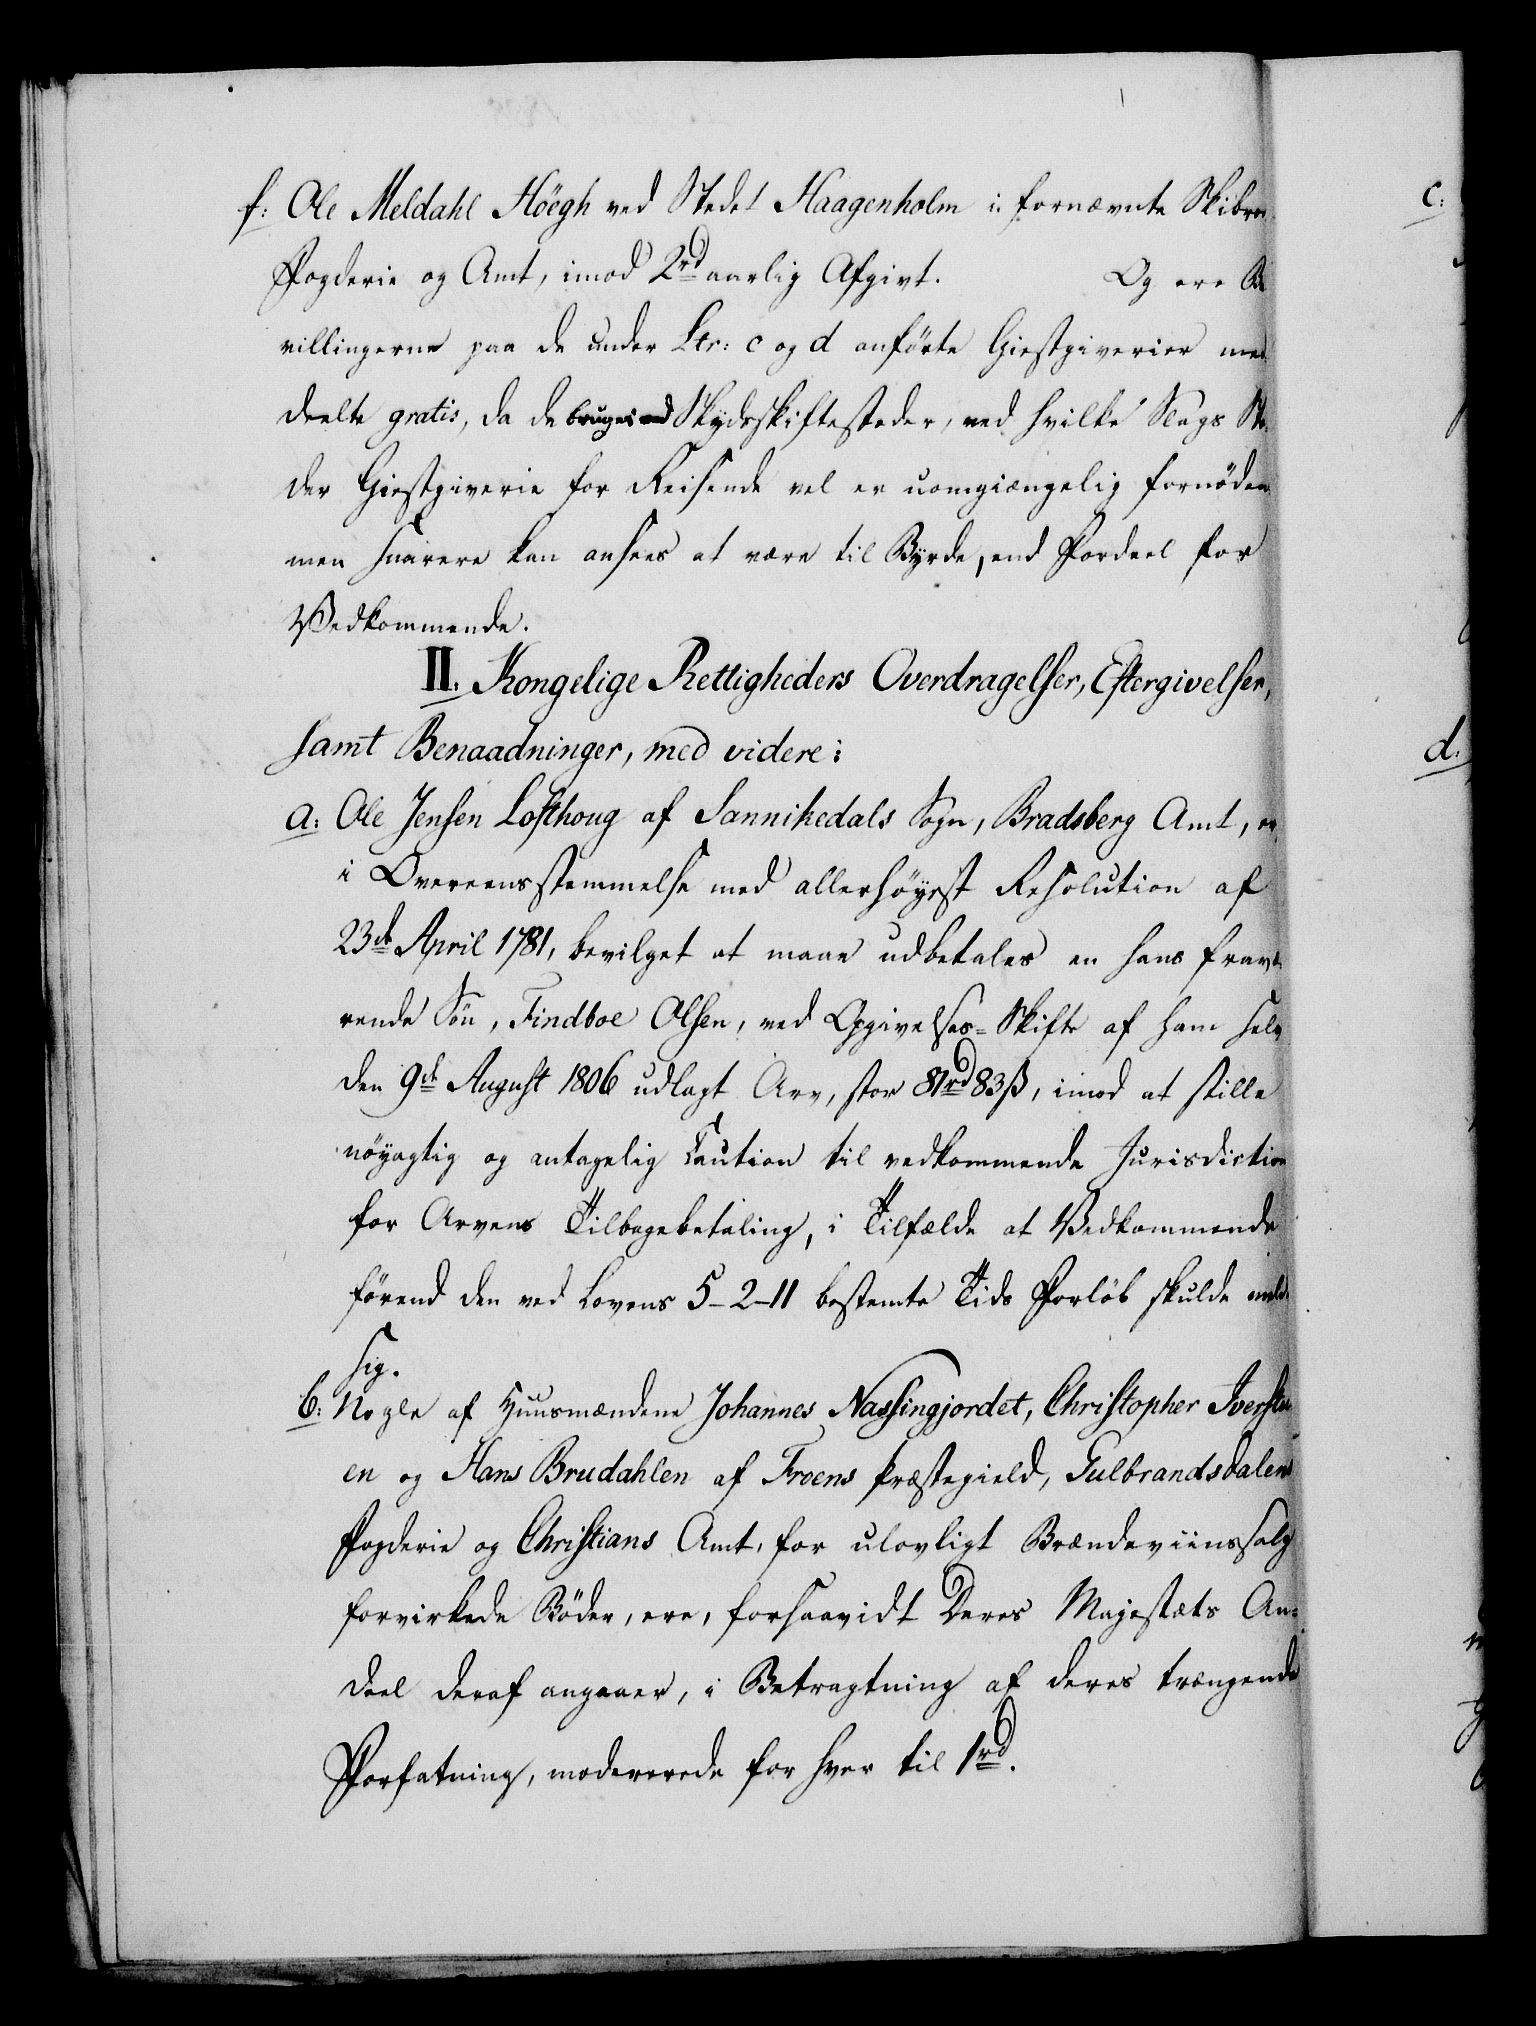 f: Ole Meldahl Höegh ved Stedet Haagenholm i fornævnte
Fogderie og Amt, imod 2rd aarlig Afgivt. Og ere Be
villingerne paa de under Ltr: c og d anförte Giestgiverier med
deelte gratis, da de Skydsskiftesteder, ved hvilke Slags Ste
der Giestgiverie for Reisende vel er uomgiængelig fornöden
men snarere kan ansees at være til Byrde, end Fordeel for
Vedkommende.
II. Kongelige Rettigheders Overdragelser, Eftergivelser,
samt Benaadninger, med videre:
a: Ole Jensen Lofthoug af Sannikedals Sogn, Bradsberg Amt, er
i Overeensstemmelse med allerhöyest Resolution af
23de April 1781, bevilget at maae udbetales en hans fravæ
rende Sön, Findboe Olsen, ved Opgivelses-Skifte af ham selv
den 9de August 1806 udlagt Arv, stor 81rd 83ß, imod at stille
nöyagtig og antagelig Caution til vedkommende Jurisdiction
for Arvens Tilbagebetaling, i Tilfælde at Vedkommende
förend den ved Lovens 5-2-11 bestemte Tids Forlöb skulde melde
sig.
b: Nogle af Huusmændene Johannes Nassingjordet, Christopher Iverstu
en og Hans Brudahlen af Froens Præstegield, Gulbrandsdalens
Fogderie og Christians Amt, for ulovligt Brændeviinssalg
forvirkede Böder, ere, forsaavidt Deres Majestæts An=
deel deraf angaaer, i Betragtning af deres trængende
Forfatning, modererede for hver til 1rd.
c:
d: